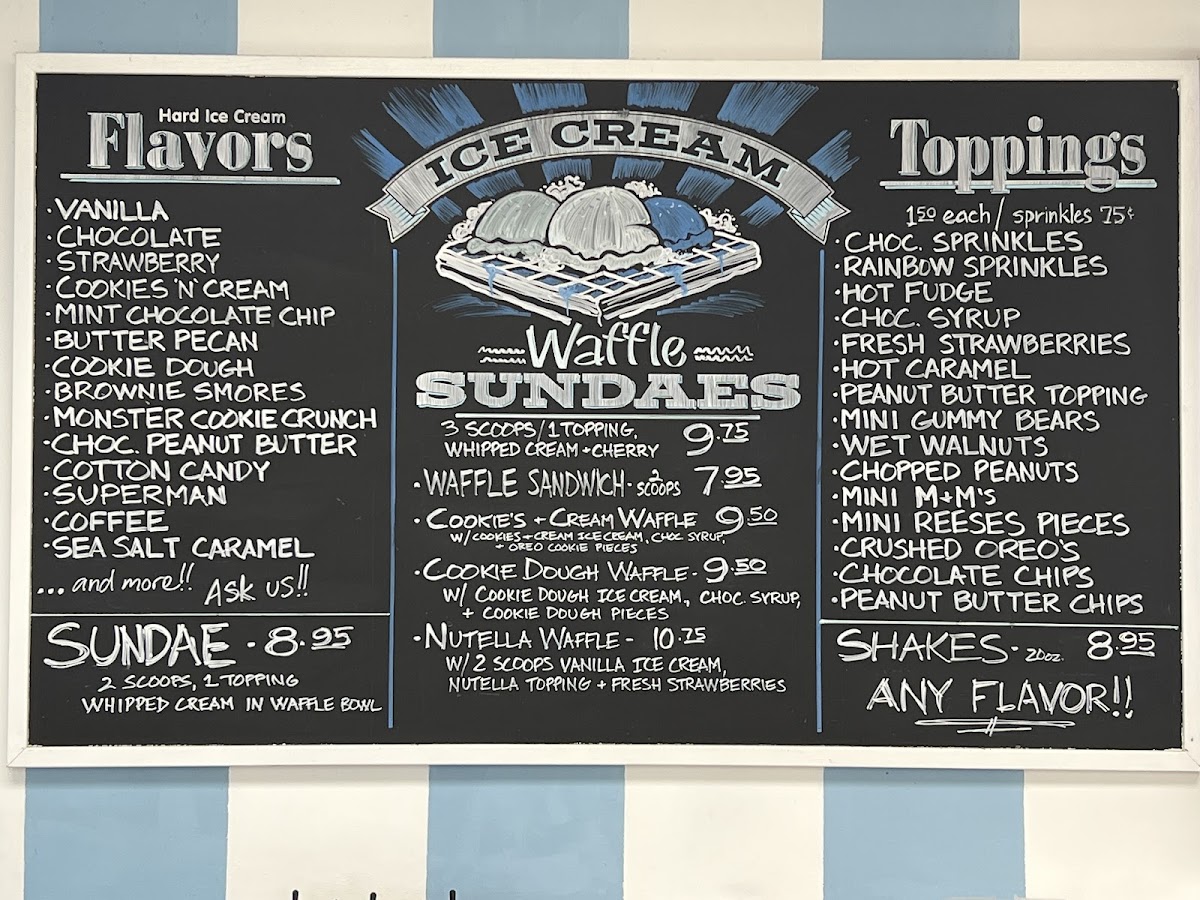 Hard Ice Cream
Flavors
· VANILLA
· CHOCOLATE
· STRAWBERRY
· COOKIES 'N' CREAM
· MINT CHOCOLATE CHIP
· BUTTER PECAN
· COOKIE DOUGH
· BROWNIE SMORES
· MONSTER COOKIE CRUNCH
· CHOC. PEANUT BUTTER
· COTTON CANDY
· SUPERMAN
· COFFEE
· SEA SALT CARAMEL
...and more!! Ask us!!
SUNDAE - 8.95
2 SCOOPS, 1 TOPPING
WHIPPED CREAM IN WAFFLE BOWL
ICE CREAM
Waffle
SUNDAES
3 SCOOPS/1 TOPPING, 9.75
WHIPPED CREAM + CHERRY
· WAFFLE SANDWICH - 2 SCOOPS 7.95
· COOKIE'S + CREAM WAFFLE 9.50
W/ COOKIES + CREAM ICE CREAM, CHOC SYRUP,
+ OREO COOKIE PIECES
· COOKIE DOUGH WAFFLE - 9.50
W/ COOKIE DOUGH ICE CREAM, CHOC. SYRUP,
+ COOKIE DOUGH PIECES
· NUTELLA WAFFLE - 10.75
W/ 2 SCOOPS VANILLA ICE CREAM,
NUTELLA TOPPING + FRESH STRAWBERRIES
Toppings
1.50 each / sprinkles 75¢
· CHOC. SPRINKLES
· RAINBOW SPRINKLES
· HOT FUDGE
· CHOC. SYRUP
· FRESH STRAWBERRIES
· HOT CARAMEL
· PEANUT BUTTER TOPPING
· MINI GUMMY BEARS
· WET WALNUTS
· CHOPPED PEANUTS
· MINI M+M'S
· MINI REESES PIECES
· CRUSHED OREO'S
· CHOCOLATE CHIPS
· PEANUT BUTTER CHIPS
SHAKES - 20oz. 8.95
ANY FLAVOR!!